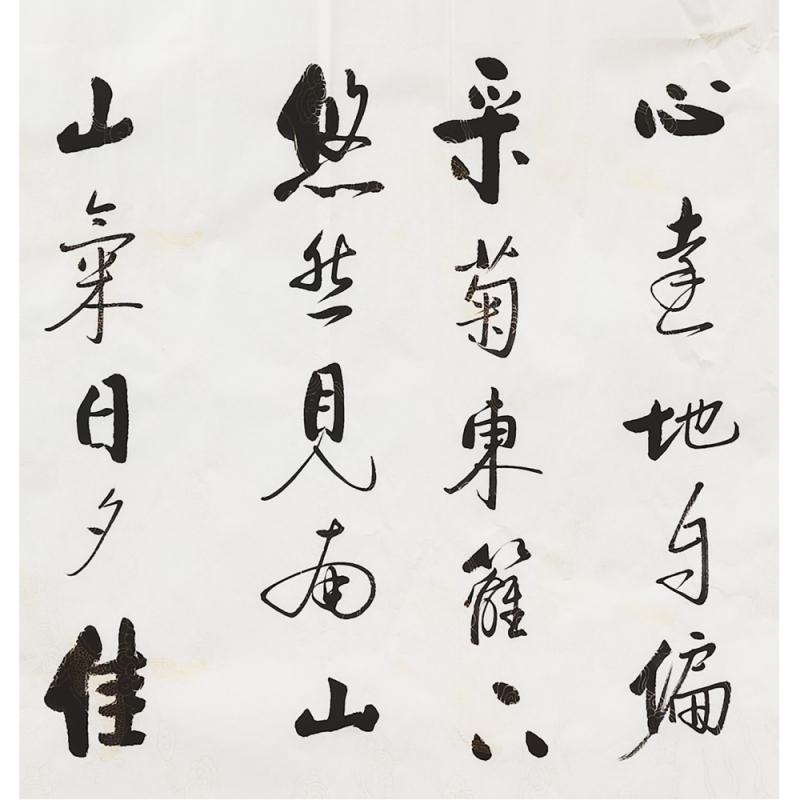 心遠地自偏
采菊東籬下
悠然見南山
山氣日夕佳